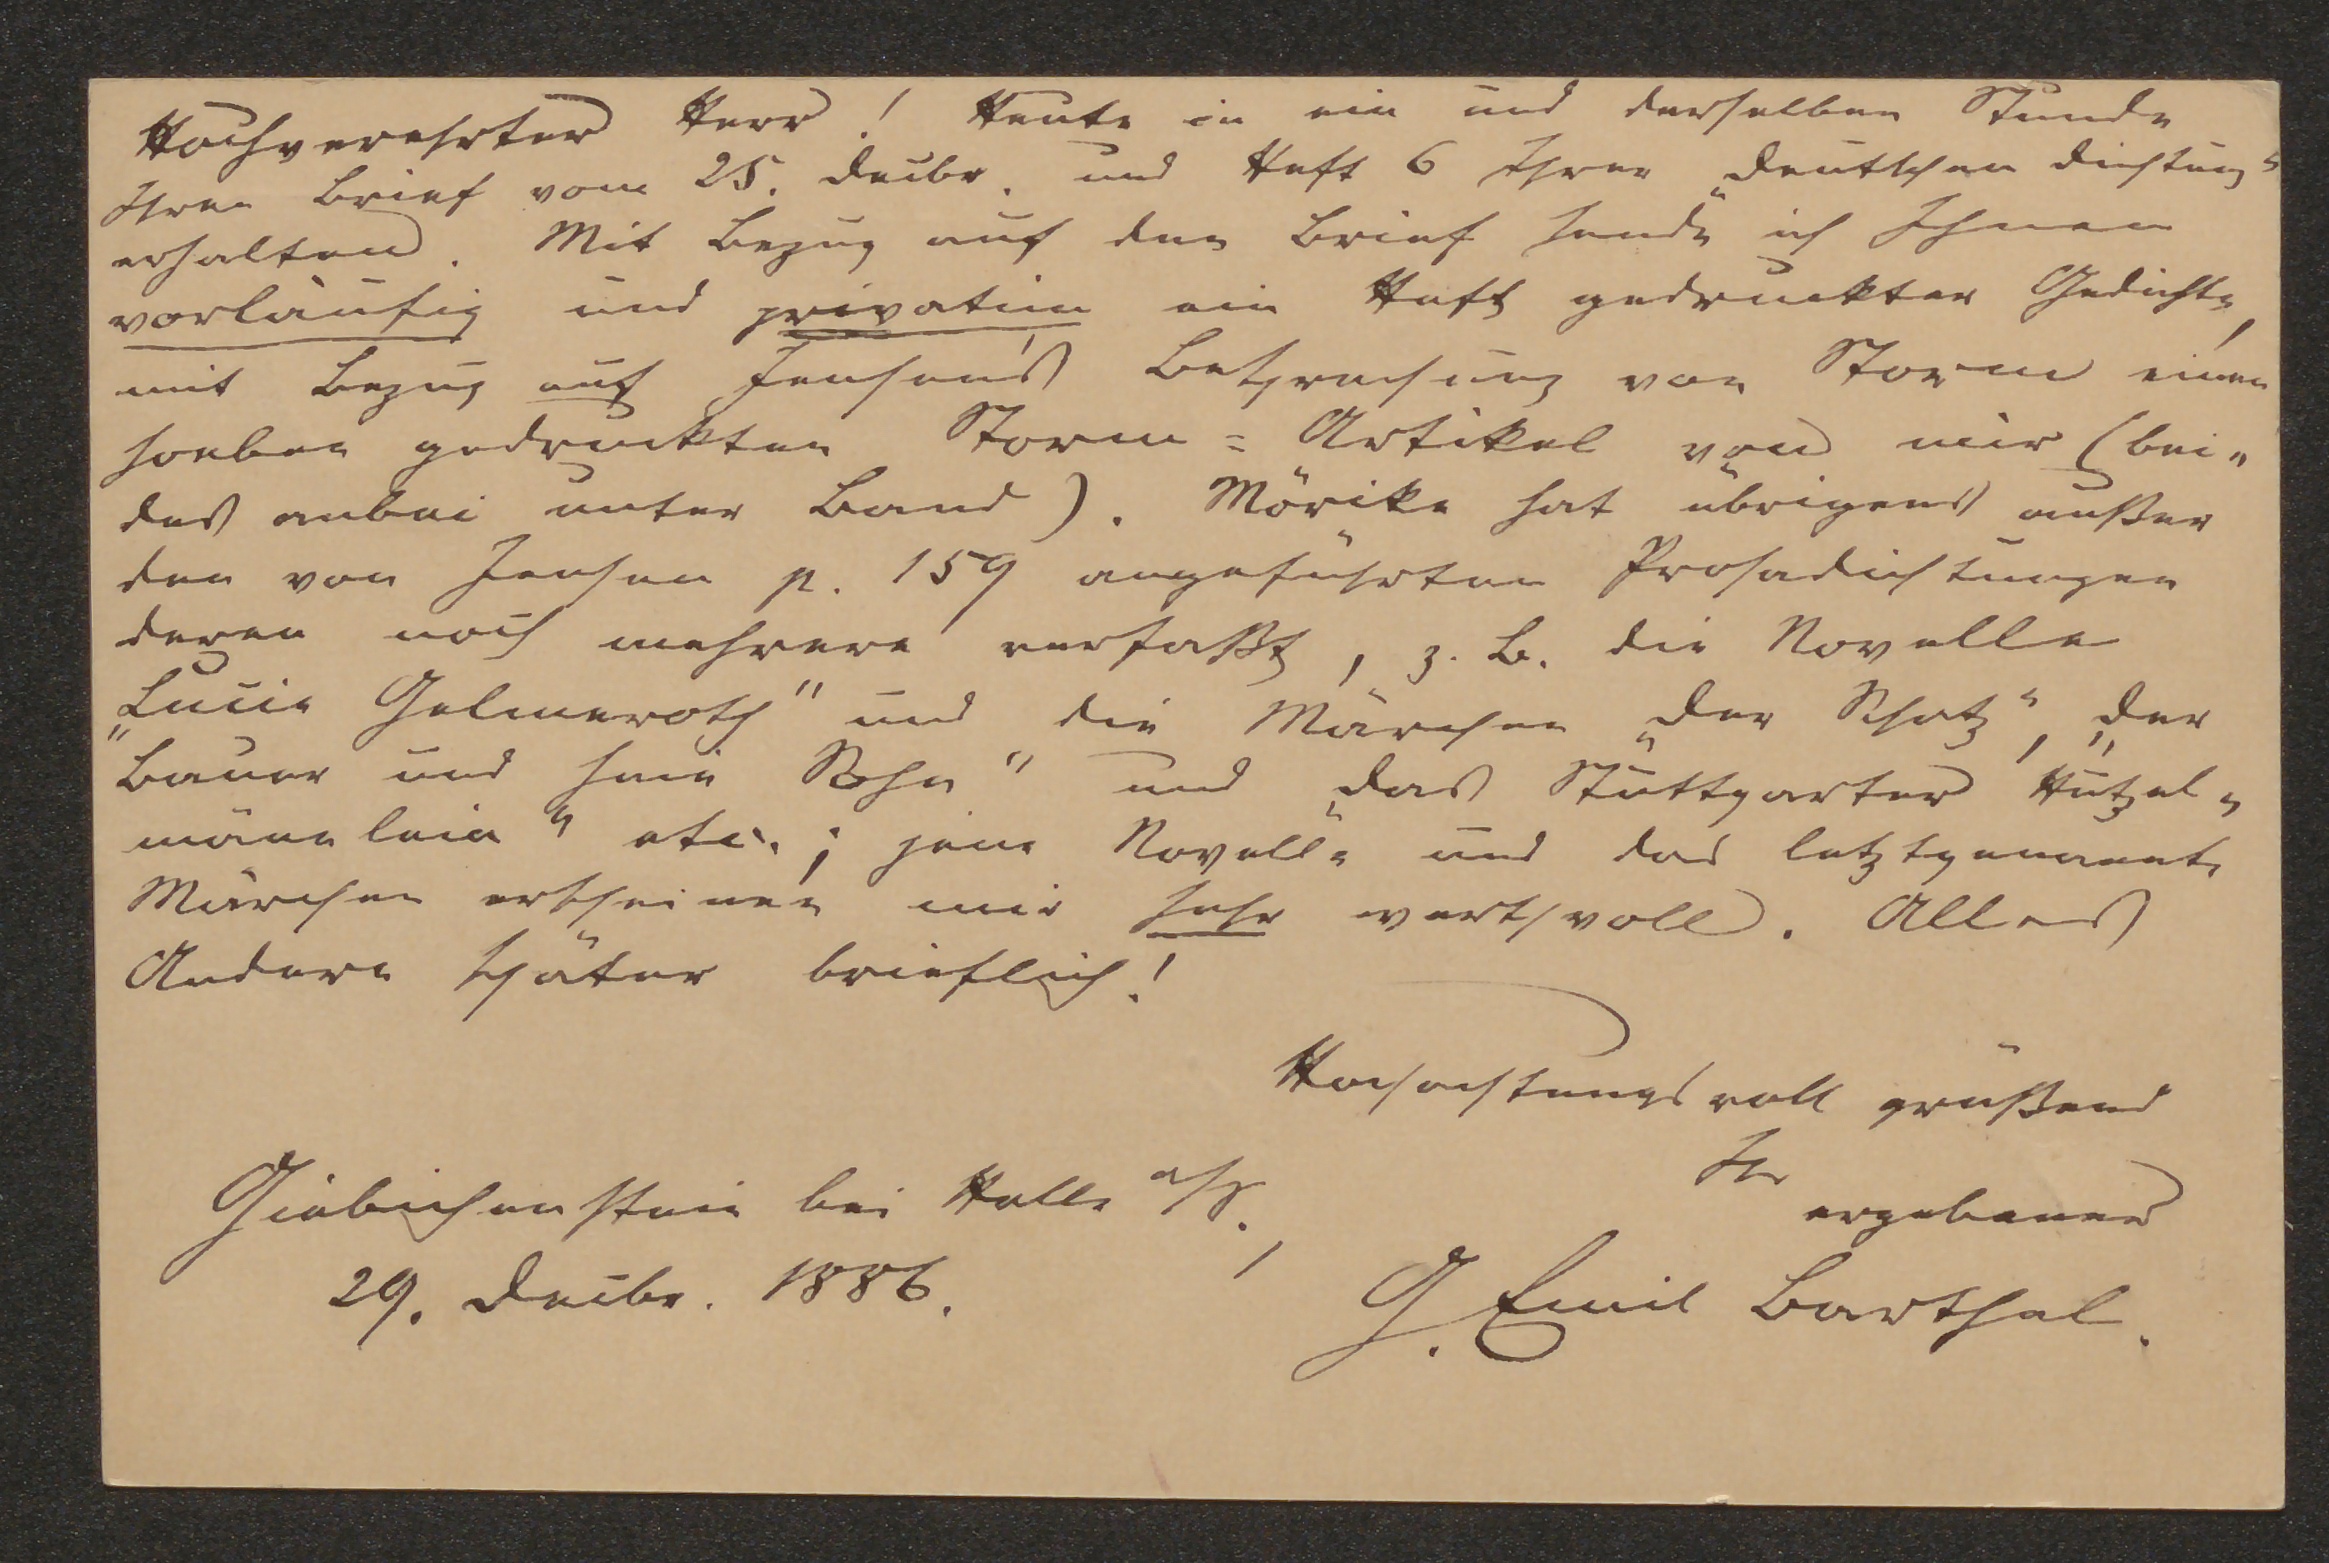 Hochverehrter Herr! Heute in ein und derselben Stunde
Ihren Brief vom 25. Decbr. und Heft 6 Ihrer „Deutschen Dichtung“
erhalten. Mit Bezug auf den Brief sende ich Ihnen
vorläufig und privatim ein Heft gedruckter Gedichte,
mit Bezug auf Jensens Besprechung von Storm einen
soeben gedruckten Storm=Artikel von mir (bei-
des anbei unter Band). Mörike hat übrigens außer
den von Jensen p. 159 angeführten Prosadichtungen
deren noch mehrere verfaßt, z. B. die Novelle
„Lucie Gelmeroth“ und die Märchen „Der Schatz“, „Der
Bauer und sein Sohn“ und „Das Stuttgarter Hutzel-
männlein“ etc.; jene Novelle und das letztgenannte
Märchen erscheinen mir sehr werthvoll. Alles
Andere später brieflich!
Hochachtungsvoll grüßend
Ihr
ergebener
Giebichenstein bei Halle a/S.,
29. Decbr. 1886.
G. Emil Barthel.